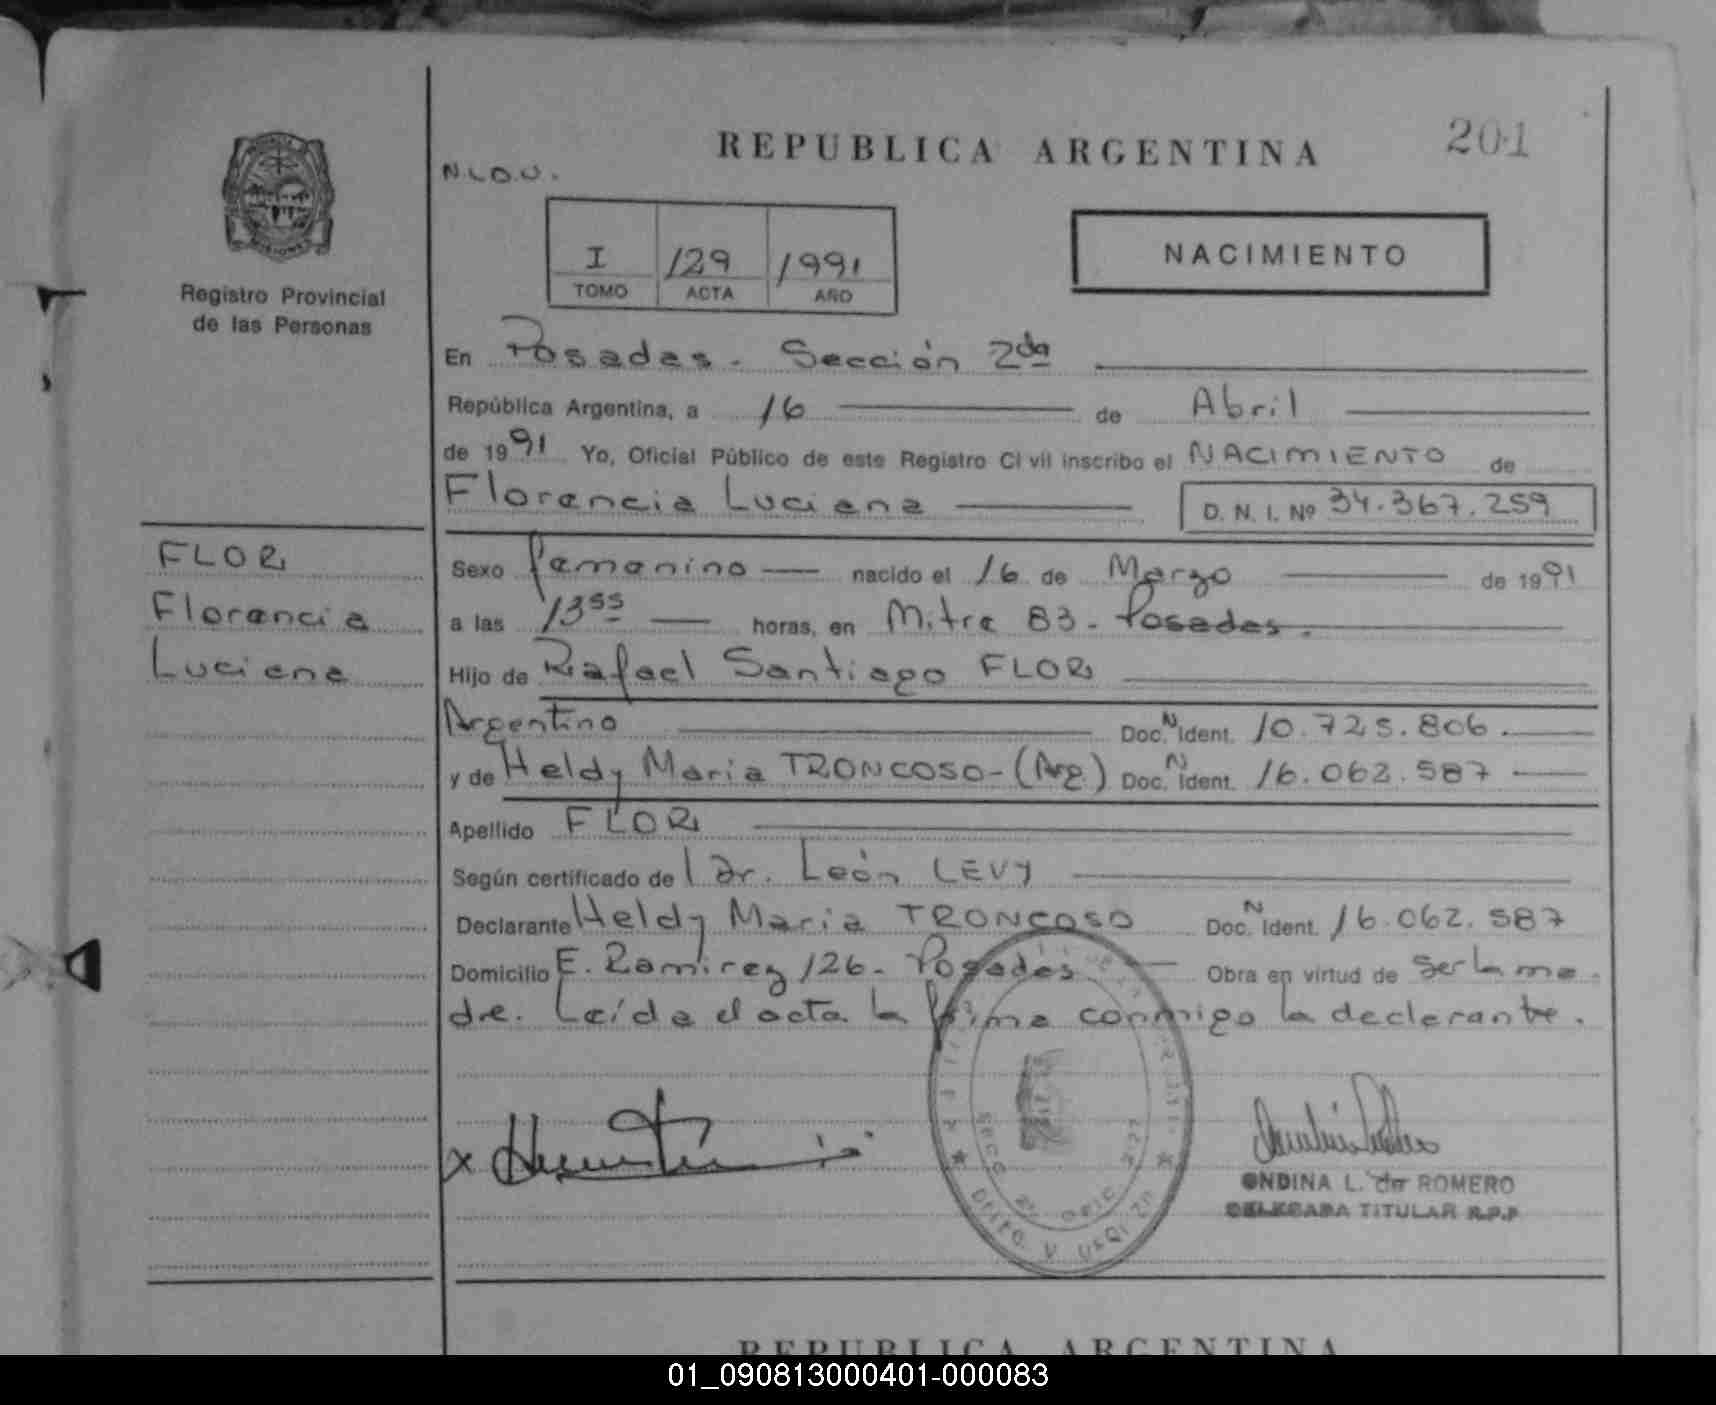 REPUBLICA ARGENTINA
201
N.L.O.U.
MISIONES
Registro Provincial
de las Personas
I 129 1991
TOMO ACTA AÑO
NACIMIENTO
En Posadas - Sección 2da
República Argentina, a 16 de Abril
de 1991 Yo, Oficial Público de este Registro Civil inscribo el NACIMIENTO de
Florencia Luciana D. N. I. Nº 34.367.259
FLOR
Florencia
Luciana
Sexo femenino nacido el 16 de Marzo de 1991
a las 13 55 horas, en Mitre 83 - Posadas.
Hijo de Rafael Santiago FLOR
Argentino Doc. N Ident. 10.725.806.
y de Heldy Maria TRONCOSO - (Arg.) Doc. N Ident. 16.062.587
Apellido FLOR
Según certificado del Dr. León LEVY
Declarante Heldy Maria TRONCOSO Doc. N Ident. 16.062.587
Domicilio E. Ramirez 126 - Posadas Obra en virtud de ser la ma
dre. Leída el acta la firma conmigo la declarante.
x
ONDINA L. de ROMERO
DELEGADA TITULAR R.P.P
REPUBLICA ARGENTINA
01_090813000401-000083